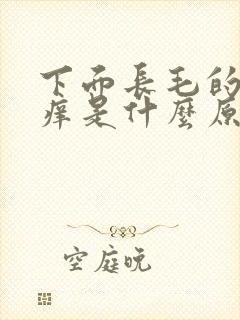 下面長毛的
癢是什麼原
空庭晚